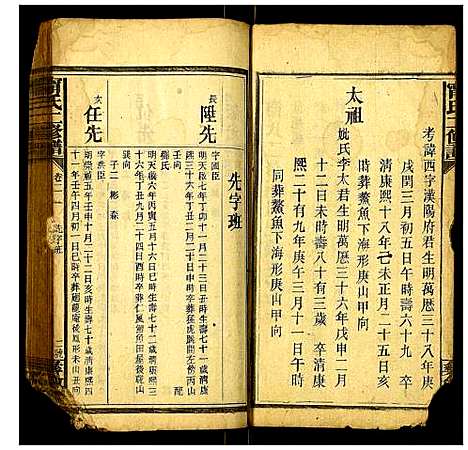 太祖
考諱西字漢陽府君生明萬厯三十八年庚
戌閏三月初五日午時壽八十歲 卒
清康熙十八年己未正月二十五日亥
時葬鰲魚下海形庚山甲向
姚氏李太君生明萬厯三十六年戊申二月
十二日未時壽八十有三歲 卒清康
熙二十有九年庚午三月十一日午時
同葬鰲魚下海形庚山甲向
先字班
長
陞先
字國臣
明天啟七年丁卯十一月二十三日丑時生壽七十一歲清康
熙三十六年丁丑二月二十日丑時卒葬狐尾腦左側丙山
壬向 配
龔氏
明天啟六年丙寅五月十六日巳時生壽七十二歲清康熙三
十六年丁丑九月二十四日酉時卒葬仁風湖魚田屋後乾山
巽向
子二 彬 森
次
任先
字民臣
明崇禎五年壬申十月二十二日亥時生壽七十歲清康熙四
十一年壬午四月初一日巳時卒葬廻龍庵後狐形未山丑向
甯氏二修譜
卷二
先字班